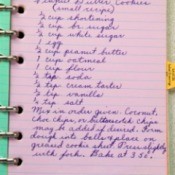 Peanut Butter Cookies
(small recipe)
½ cup shortening
½ cup br sugar
½ cup white sugar
1 egg
½ cup peanut butter
1 cup oatmeal
1 cup flour
½ tsp soda
½ tsp cream tarter
½ tsp vanilla
½ tsp salt
Mix in order given. Coconut,
choc chips, or butterscotch chips
may be added if desired. Form
into balls & place on
greased cookie sheet. Press slightly
with fork. Bake at 350°.